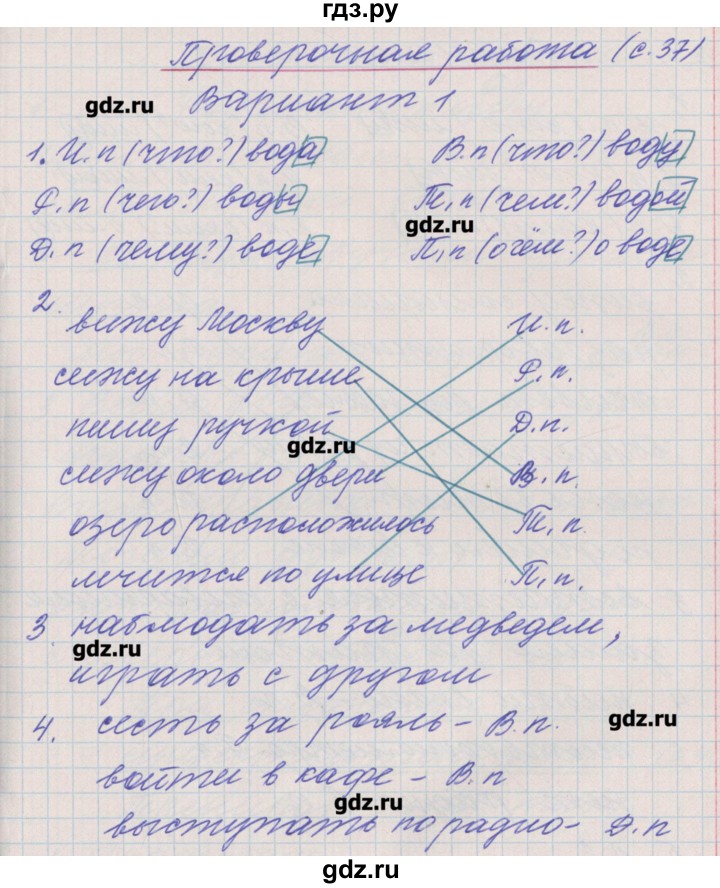 гдз.ру
Проверочная работа (с.37)
gdz.ru
Вариант 1
1. И.п (что?) вода
В.п (что?) воду
Р.п (чего?) воды
Т.п (чем?) водой
gdz.ru
Д.п (чему?) воде
П.п (о чём?) о воде
2.
вижу Москву
И.п.
сижу на крыше
Р.п.
пишу ручкой
Д.п.
gdz.ru
сижу около двери
В.п.
озеро расположилось
Т.п.
мчится по улице
П.п.
3. наблюдать за медведем,
gdz.ru
играть с другом
4. сесть за рояль - В.п.
gdz.ru
войти в кафе - В.п
gdz.ru
выступать по радио - Д.п
gdz.ru